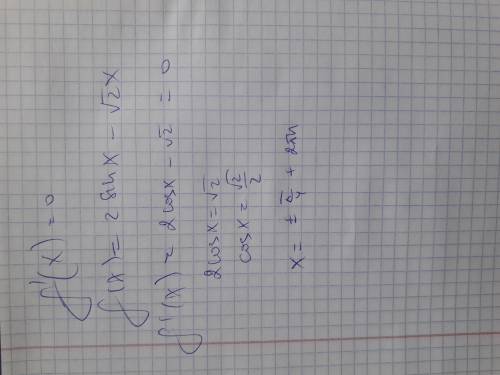 f'(x) = 0
f(x) = 2 sin x - √2 x
f'(x) = 2 cos x - √2 = 0
2 cos x = √2
cos x = √2/2
x = ± π/4 + 2πn